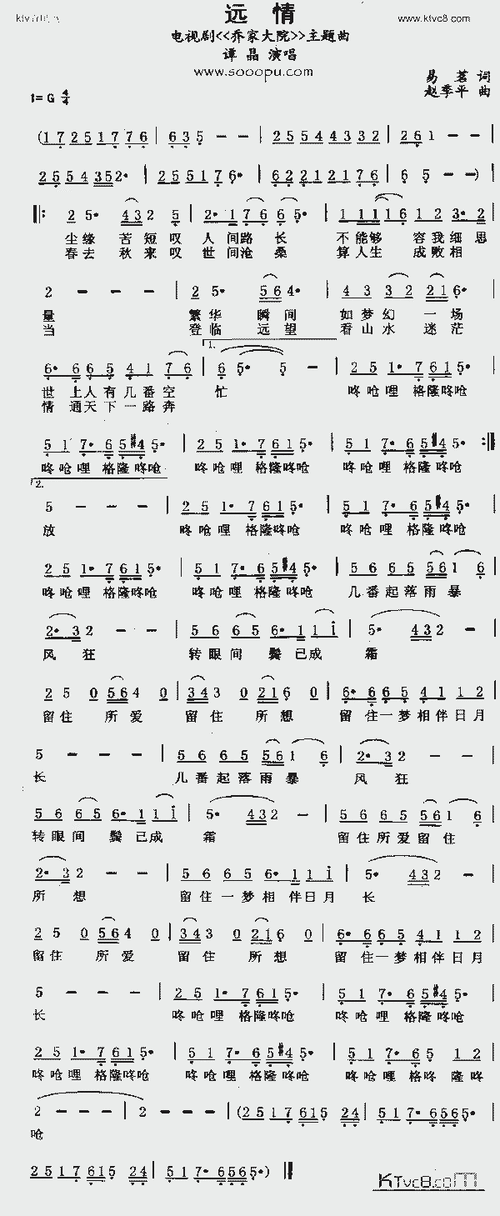 www.ktvc8.com
远 情
电视剧<<乔家大院>>主题曲
谭 晶 演唱
www.sooopu.com
易 茗 词
赵季平 曲
1=G 4/4
(1 7 2 5 1 7 7 6 | 6 3 5 - - | 2 5 5 4 4 3 3 2 | 2 6 1 - - |
2 5 5 4 3 5 2· | 2 5 5 1 7 6· | 6 2 2 1 2 1 7 6 | 6 5 - -) |
‖: 2 5· 4 3 2 5 | 2· 1 7 6 6 5 | 1 1 1 1 1 6 1 2 3· 2 |
尘缘 苦短叹 人间路长 不能够 容我细思
春去 秋来叹 世间沧桑 算人生 成败相
2 - - - | 2 5· 5 6 4· | 4 3 3 2 2 1 6· |
量 繁华 瞬间 如梦幻 一场
当 登临 远望 看山水 迷茫
1.
6· 6 6 5 4 1 7 6 | 6 5· 5 - | 2 5 1 · 7 6 1 5· |
世 上人有几番空 忙 咚呛哩 格隆咚呛
情 通天下一路奔
5 1 7· 6 5 #4 5· | 2 5 1· 7 6 1 5· | 5 1 7· 6 5 #4 5· :‖
咚呛哩 格隆咚呛 咚呛哩 格隆咚呛 咚呛哩 格隆咚呛
2.
5 - - - | 2 5 1· 7 6 1 5· | 5 1 7· 6 5 #4 5· |
放 咚呛哩 格隆咚呛 咚呛哩 格隆咚呛
2 5 1· 7 6 1 5· | 5 1 7· 6 5 #4 5· | 5 6 6 5 6 5 5 6 1 6 |
咚呛哩 格隆咚呛 咚呛哩 格隆咚呛 几番起落雨暴
2· 3 2 - - | 5 6 6 5 6· 1 1 i | 5· 4 3 2 - |
风狂 转眼间 鬓已成 霜
2 5 0 5 6 4 0 | 3 4 3 0 2 1 6 0 | 6· 6 6 5 4 1 1 2 |
留住 所爱 留住 所想 留 住一梦相伴日月
5 - - - | 5 6 6 5 5 6 1 6 | 2· 3 2 - - |
长 几番起落雨暴 风狂
5 6 6 5 6· 1 1 i | 5· 4 3 2 - | 5 6 6 5 6 5 5 6 1 6 |
转眼间 鬓已成 霜 留住所爱留住
2· 3 2 - - | 5 6 6 5 6· 1 1 i | 5· 4 3 2 - |
所想 留住一梦相伴日月 长
2 5 0 5 6 4 0 | 3 4 3 0 2 1 6 0 | 6· 6 6 5 4 1 1 2 |
留住 所爱 留住 所想 留 住一梦相伴日月
5 - - - | 2 5 1· 7 6 1 5· | 5 1 7· 6 5 #4 5· |
长 咚呛哩 格隆咚呛 咚呛哩 格隆咚呛
2 5 1· 7 6 1 5· | 5 1 7· 6 5 #4 5· | 5 1 7· 6 5 4 5 |
咚呛哩 格隆咚呛 咚呛哩 格隆咚呛 咚呛哩 格咚 隆咚
2 - - - | 2 - - - | (2 5 1 7 6 1 5 2 4 | 5 1 7· 6 5 6 5· |
呛
2 5 1 7 6 1 5 2 4 | 5 1 7· 6 5 6 5·) ‖
KTvc8.com